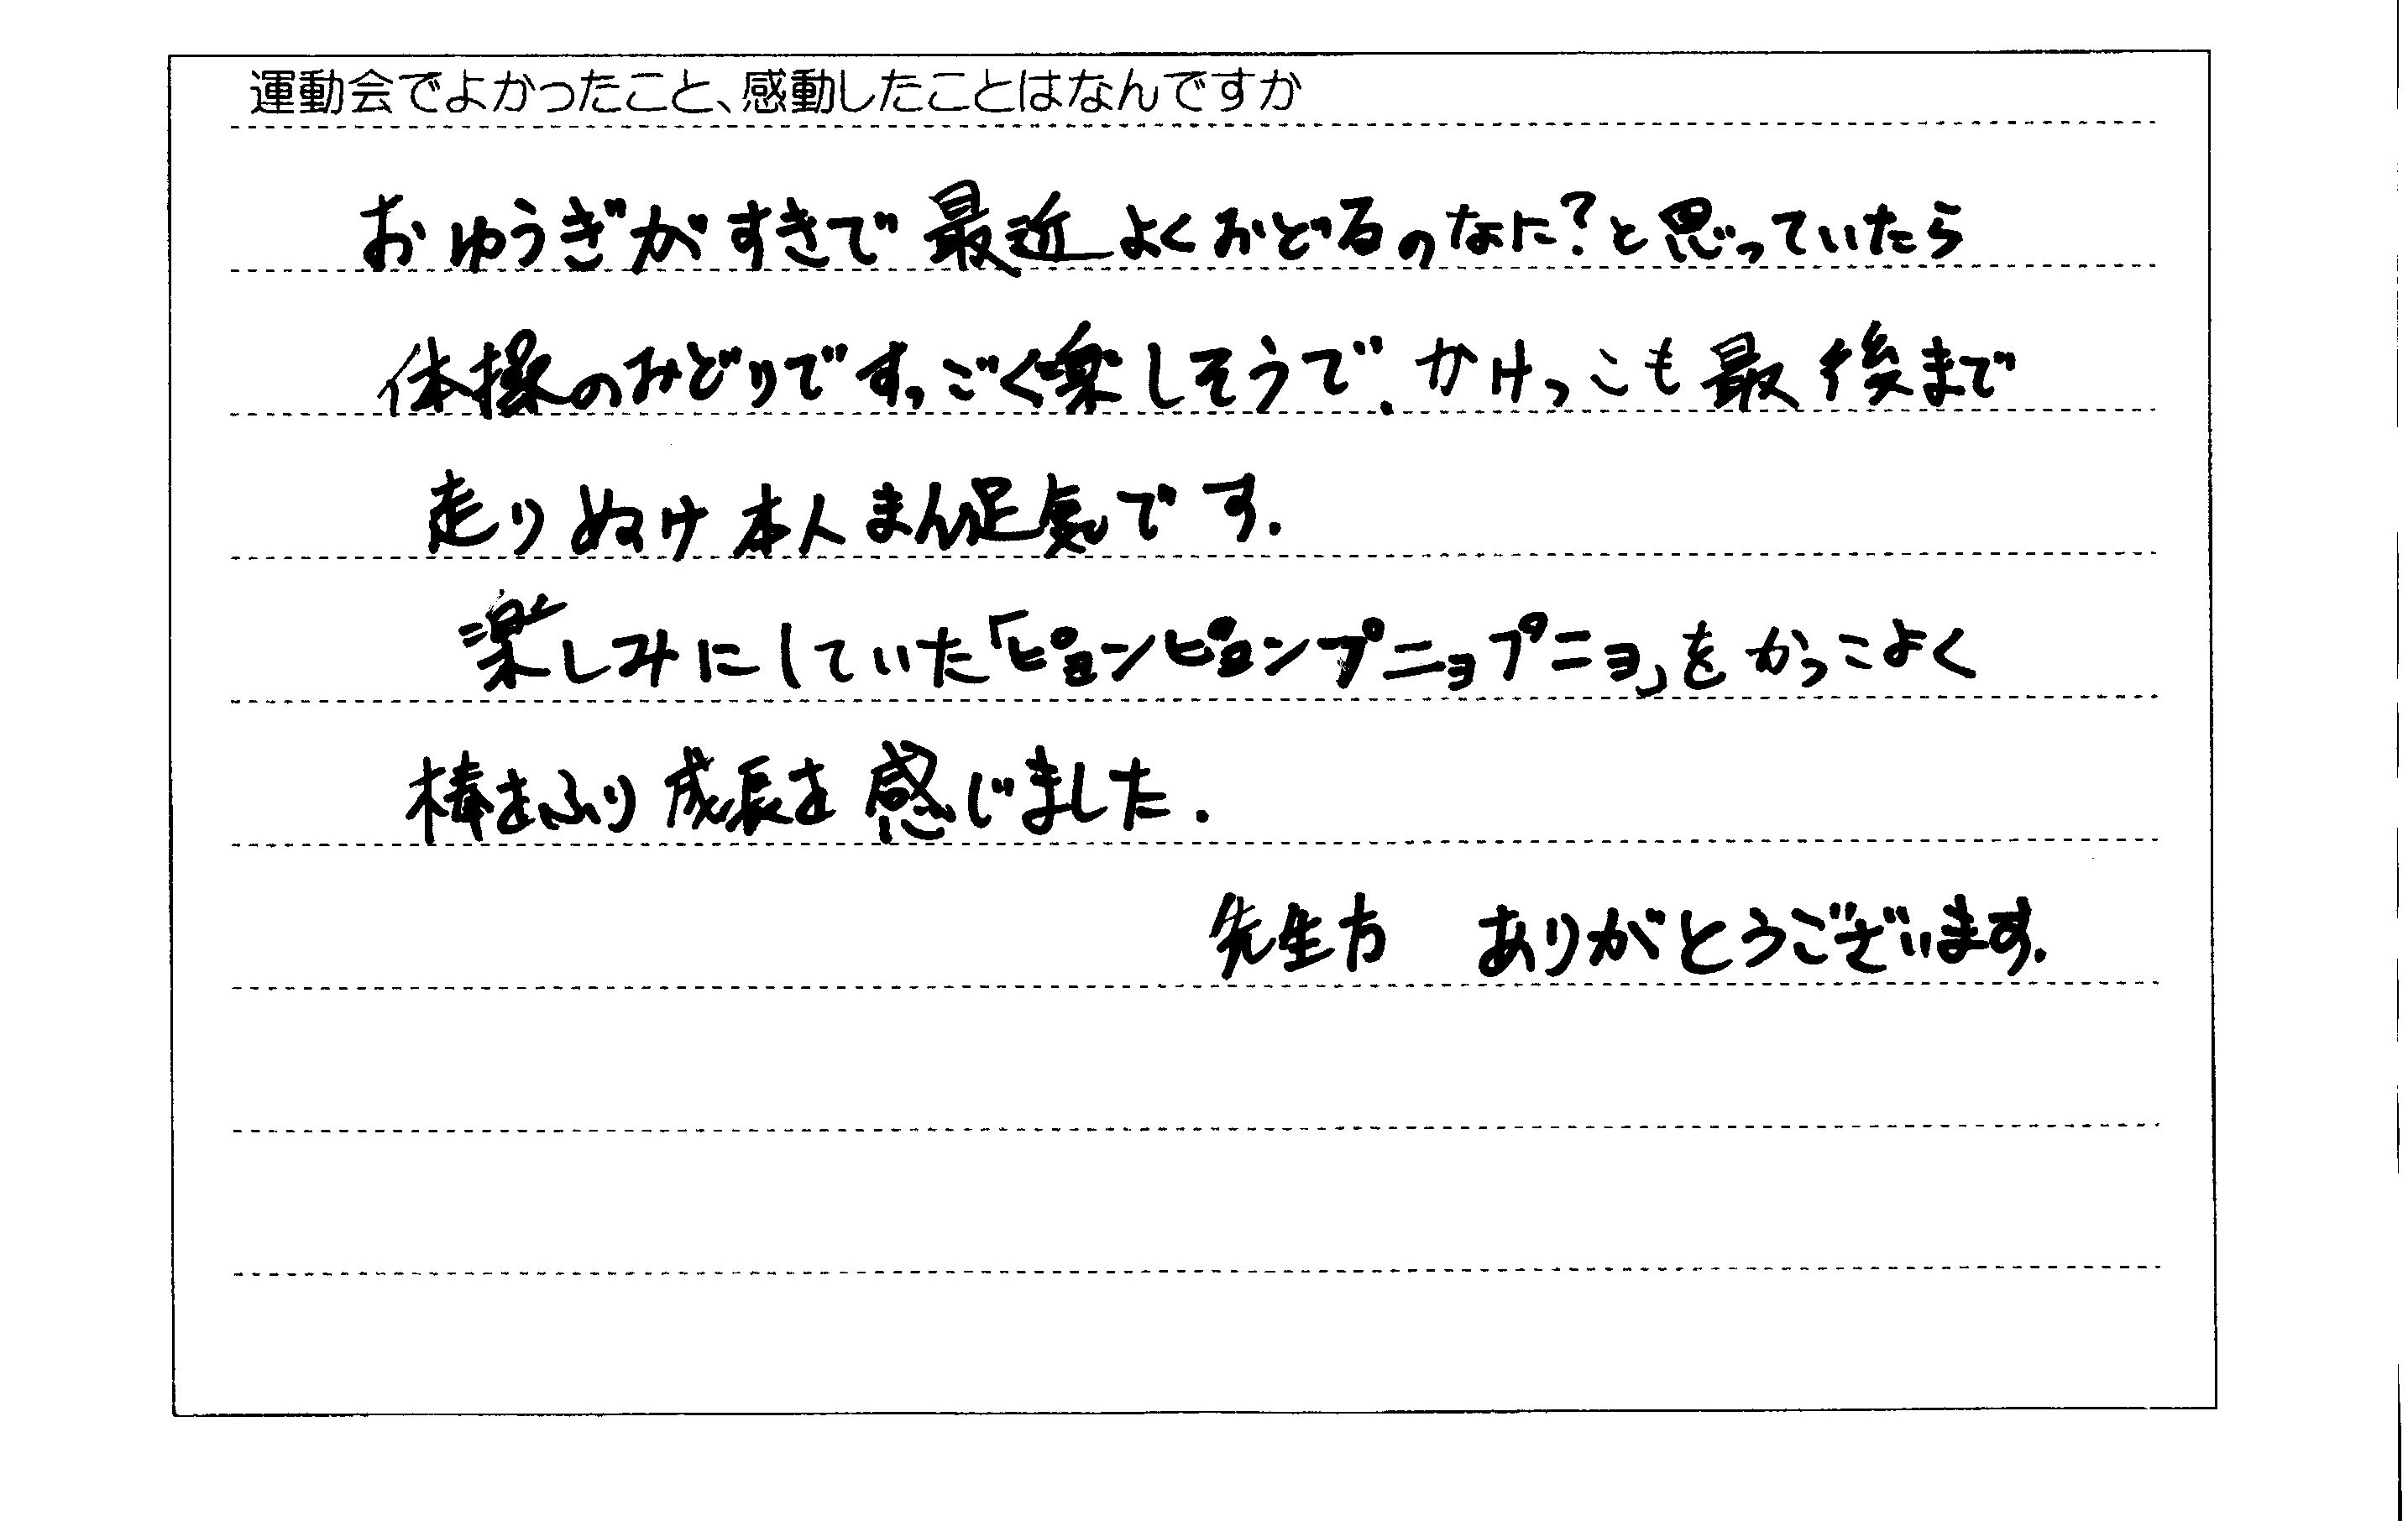 運動会でよかったこと、感動したことはなんですか
おゆうぎがすきで最近よくおどるのなに?と思っていたら
体操のみどりです。すっごく楽しそうで、かけっこも最後まで
走りぬけ本人まん足気です.
楽しみにしていた「ピョンピョンプニョプニョ」をかっこよく
棒をふり成長を感じました.
先生方 ありがとうございます.